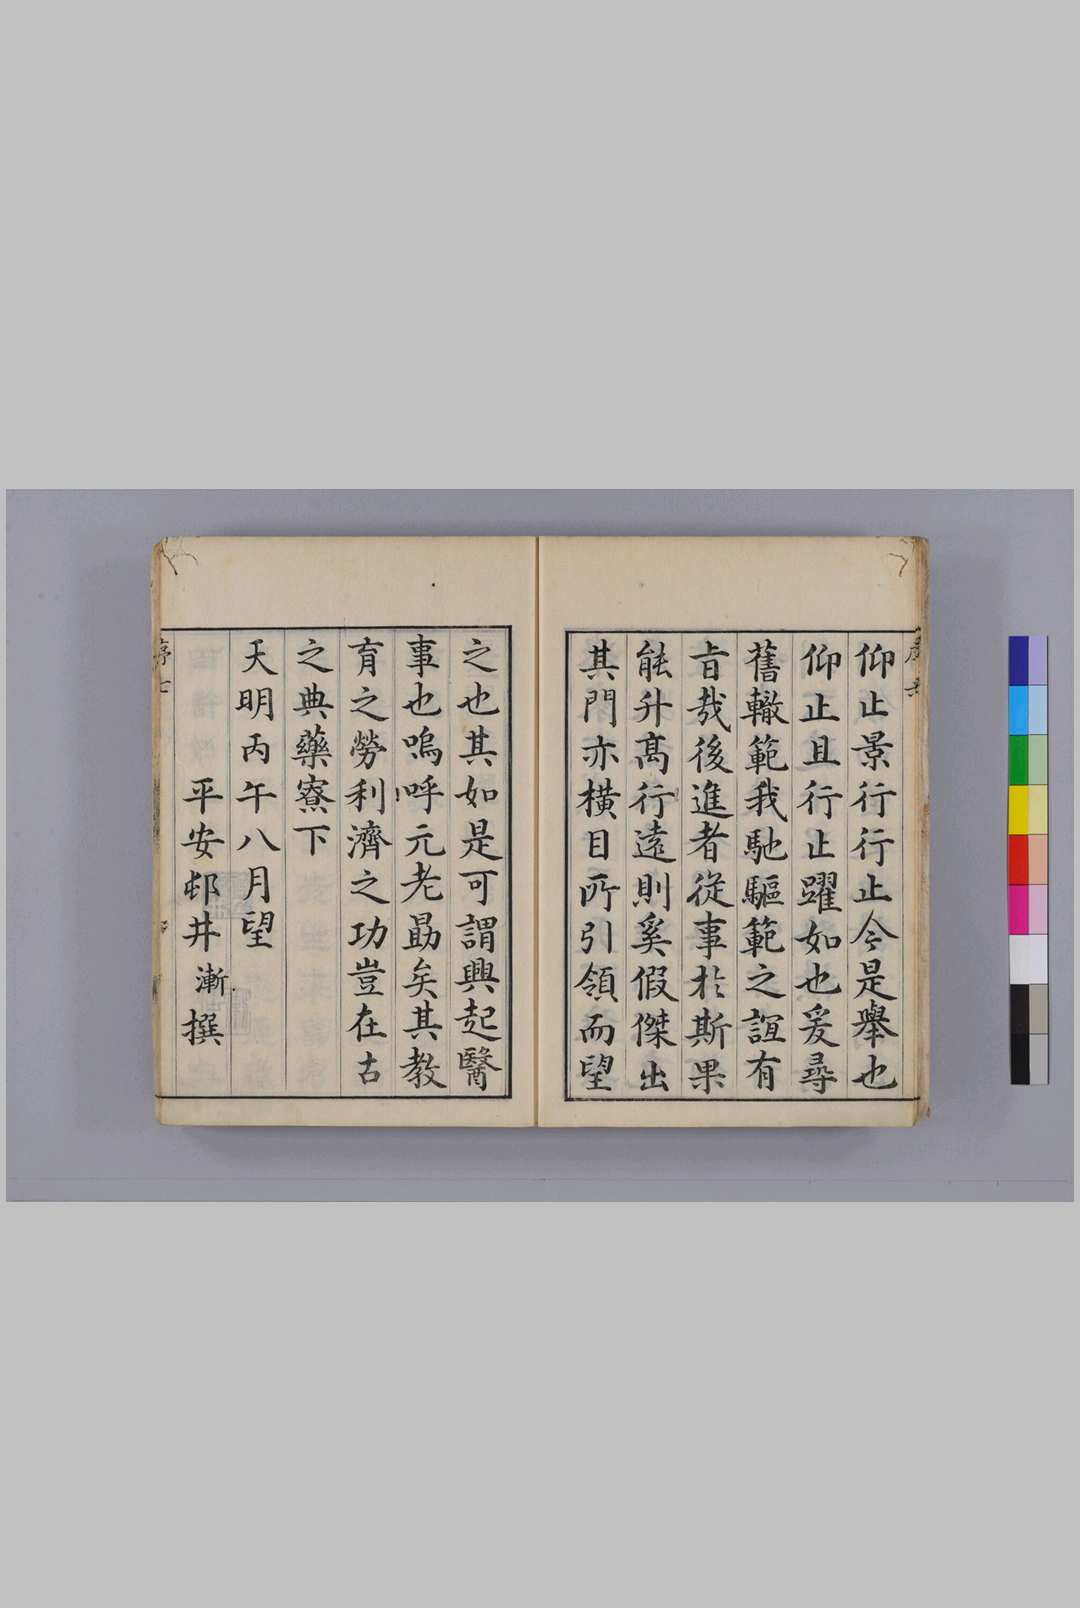 仰止景行行止今是舉也
仰止且行止躍如也爰尋
舊轍範我馳驅範之誼有
㫖哉後進者從事於斯果
能升高行遠則奚假傑出
其門亦橫目所引領而望
之也其如是可謂興起醫
事也嗚呼元老勗矣其教
育之勞利濟之功豈在古
之典藥寮下
天明丙午八月望
平安邨井漸撰
序七